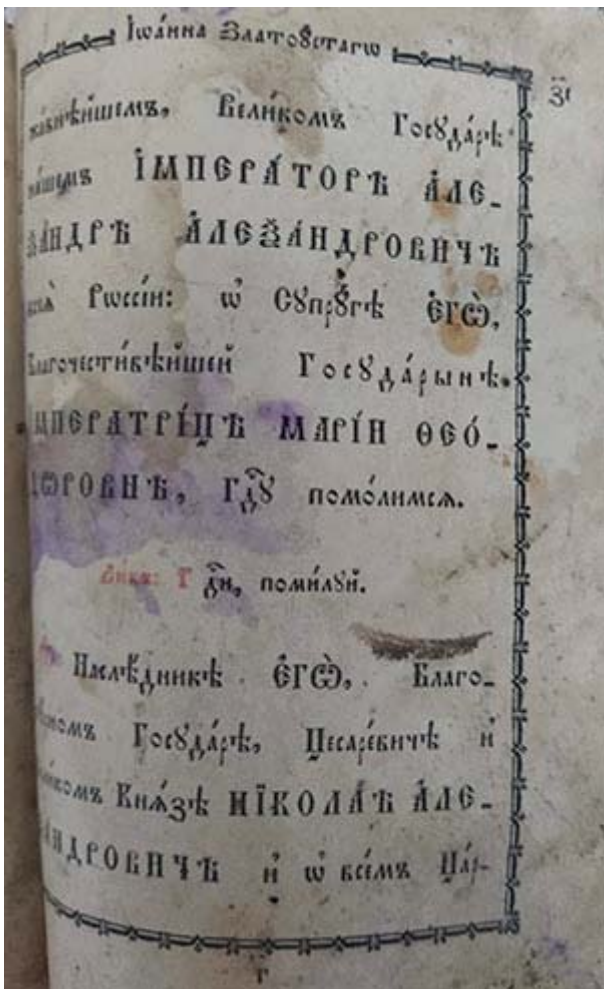 Їѡа́нна Златоꙋ́стагѡ
з҃і
жа́внѣйшемъ, Вели́комъ Госꙋда́рѣ
на́шемъ І҆МПЕРА́ТОРѢ А҆ЛЕ-
Ѯа́НДРѢ А҆ЛЕѮа́НДРОВИЧѢ
всеѧ̀ Рѡссі́и: ѡ҆ Сꙋпрꙋ́гѣ Є҆ГѠ̀,
Благочести́вѣйшей Госꙋда́рынѣ,
І҆МПЕРАТРІ́ЦѢ МАРІ́И ѲЕО́-
ДѠРОВНѢ, Гдⷭ҇ꙋ помо́лимсѧ.
Ликъ: Гдⷭ҇и, поми́лꙋй.
Наслѣ́дникѣ Є҆ГѠ̀, Благо-
вѣ́рномъ Госꙋда́рѣ, Цесаре́вичѣ и҆
Вели́комъ Кнѧ́зѣ НІКОЛА́Ѣ А҆ЛЕ-
ѮА́НДРОВИЧѢ и҆ ѡ҆ все́мъ Ца́р-
г